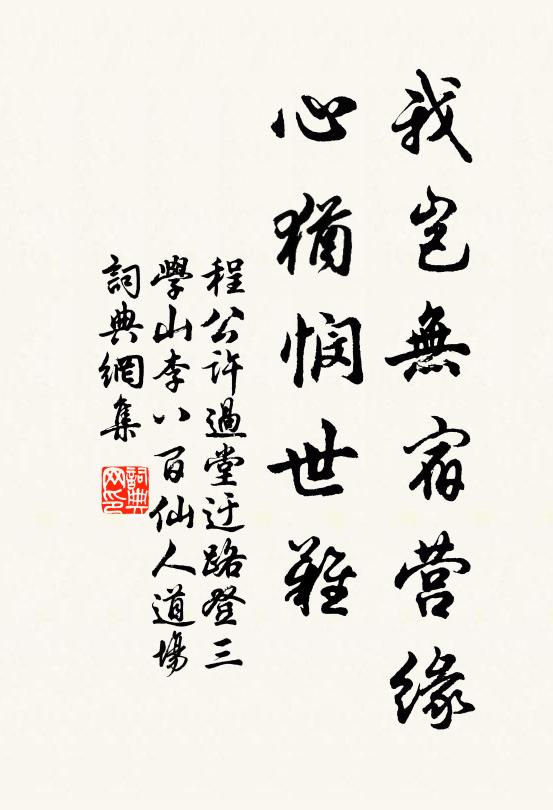 我岂無宿营緣
心猶悯世難
程公许過堂迂路登三
學山李八百仙人道場
詞典網集
詞典网印